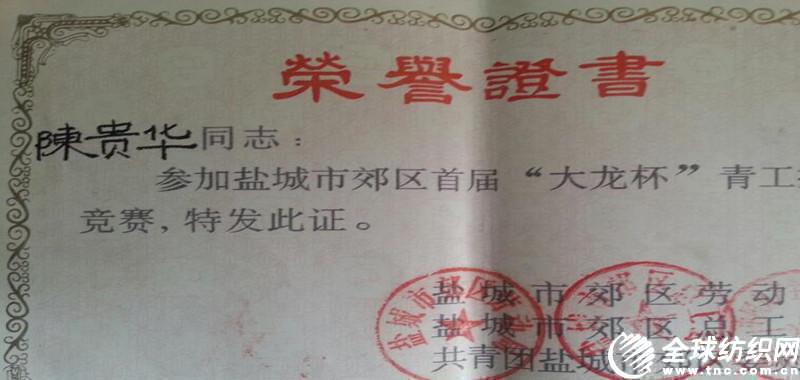 榮譽證書
陳贵华同志：
参加盐城市郊区首届“大龙杯”青工
竞赛，特发此证。
盐城市郊区劳动
盐城市郊区总工
共青团盐城
全球纺织网
www.tnc.com.cn